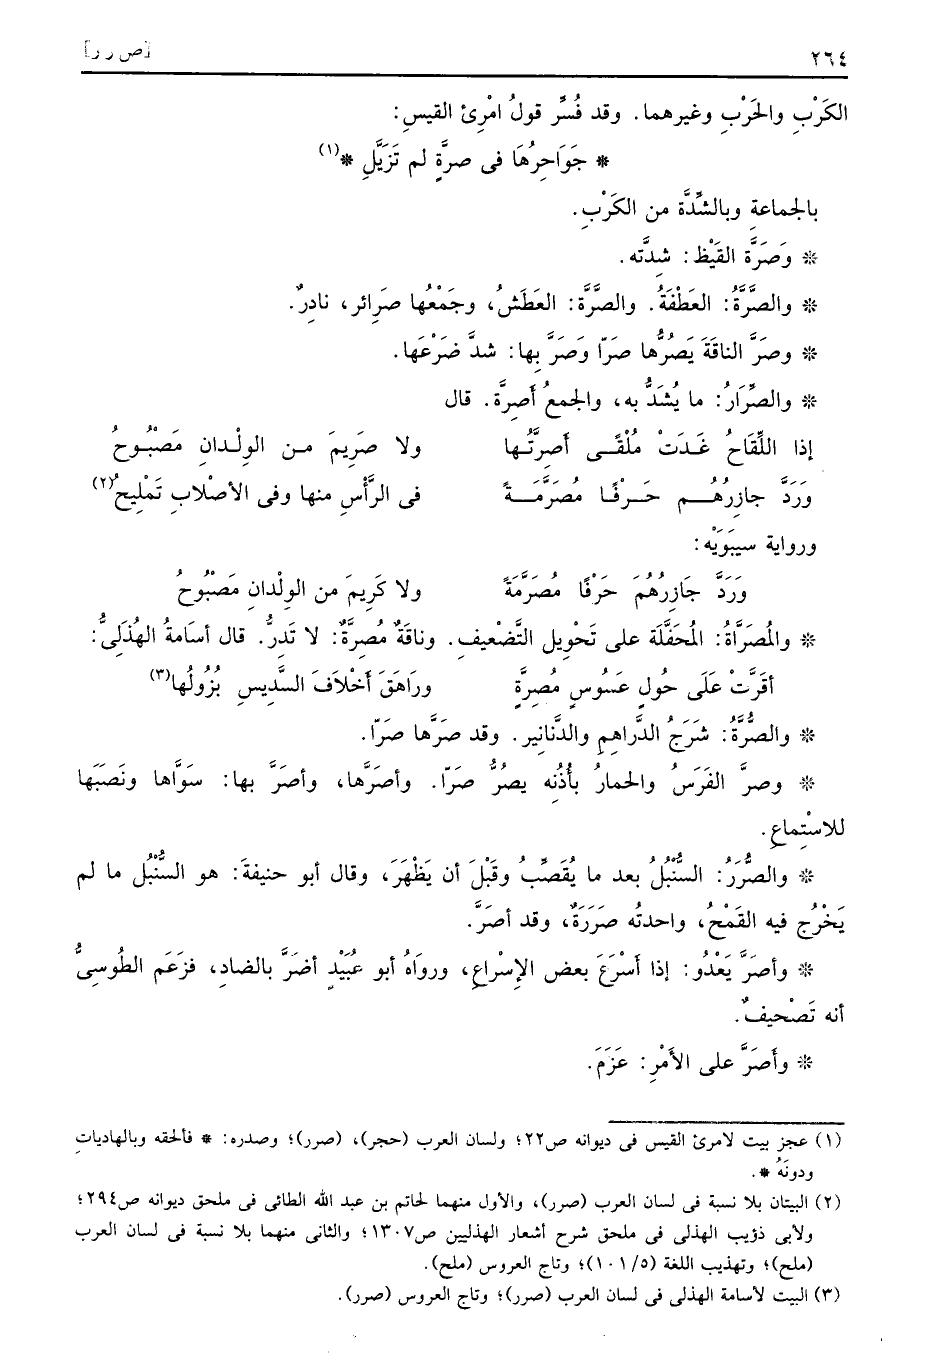 ٢٦٤ [ص ر ر]
الكَرْبِ والحَرْبِ وغيرهما. وقد فُسِّرَ قولُ امْرِئ القيسِ:
* جَوَاحِرُهَا فى صرَّةٍ لم تَزَيَّلِ *(١)
بالجماعة وبالشِّدَّة من الكَرْبِ.
* وَصَرَّة القَيْظ: شِدَّته.
* والصَّرَّةُ: العَطْفَةُ. والصَّرَّة: العَطَشُ، وجَمْعُها صَرائر، نادرٌ.
* وصَرَّ الناقَةَ يَصُرُّها صَرّا وَصَرَّ بِها: شدَّ ضَرْعَها.
* والصِّرَارُ: ما يُشدُّ به، والجمعُ أَصِرَّة. قال
إذا اللِّقَاحُ غَدَتْ مُلْقًى أصرَّتُها ولا صَرِيمَ من الولْدانِ مَصْبُوحُ
وَرَدَّ جازرُهُم حَرْفًا مُصَرَّمَةً فى الرَّأْسِ منها وفى الأصْلابِ تَمْليحُ(٢)
ورواية سيبَوَيْه:
وَرَدَّ جَازِرُهُمْ حَرْفًا مُصَرَّمَةً ولا كَرِيمَ من الولْدانِ مَصْبُوحُ
* والمُصَرَّاةُ: المُحَفَّلَة على تَحْوِيل التَّضْعيف. وناقَةٌ مُصِرَّةٌ: لا تَدرُّ. قال أسَامةُ الهُذَلىُّ:
أقرَّتْ عَلَى حُولٍ عَسُوسٍ مُصِرَّةٍ ورَاهَقَ أَخْلاَفَ السَّديسِ بُزُولُها(٣)
* والصُّرَّةُ: شَرَجُ الدَّراهِمِ والدَّنانيرِ. وقد صَرَّها صَرّا.
* وصرَّ الفَرَسُ والحمارُ بأُذُنِه يصُرُّ صَرّا. وأصَرَّها، وأصَرَّ بها: سَوَّاها ونَصَبَها
للاسْتِماعِ.
* والصَّرَرُ: السُّنْبُلُ بعد ما يُقَصِّبُ وقَبْلَ أن يَظْهَرَ، وقال أبو حنيفةَ: هو السُّنْبُل ما لم
يَخْرُجْ فيه القَمْحُ، واحدتُه صَرَرَةٌ، وقد أصَرَّ.
* وأصَرَّ يَعْدُو: إذا أَسْرَعَ بعض الإِسْراعِ، وروَاهُ أبو عُبَيْدٍ أضَرَّ بالضادِ، فزَعَم الطُوسىُّ
أنه تَصْحيفٌ.
* وأصَرَّ على الأَمْرِ: عَزَمَ.
(١) عجز بيت لامرئ القيس فى ديوانه ص٢٢؛ ولسان العرب (حجر)، (صرر)؛ وصدره: * فألحقه وبالهاديات
ودونَهُ *.
(٢) البيتان بلا نسبة فى لسان العرب (صرر)، والأول منهما لحاتم بن عبد الله الطائى فى ملحق ديوانه ص٢٩٤؛
ولأبى ذؤيب الهذلى فى ملحق شرح أشعار الهذليين ص١٣٠٧؛ والثانى منهما بلا نسبة فى لسان العرب
(ملح)؛ وتهذيب اللغة (١٠١/٥)؛ وتاج العروس (ملح).
(٣) البيت لأسامة الهذلى فى لسان العرب (صرر)؛ وتاج العروس (صرر).